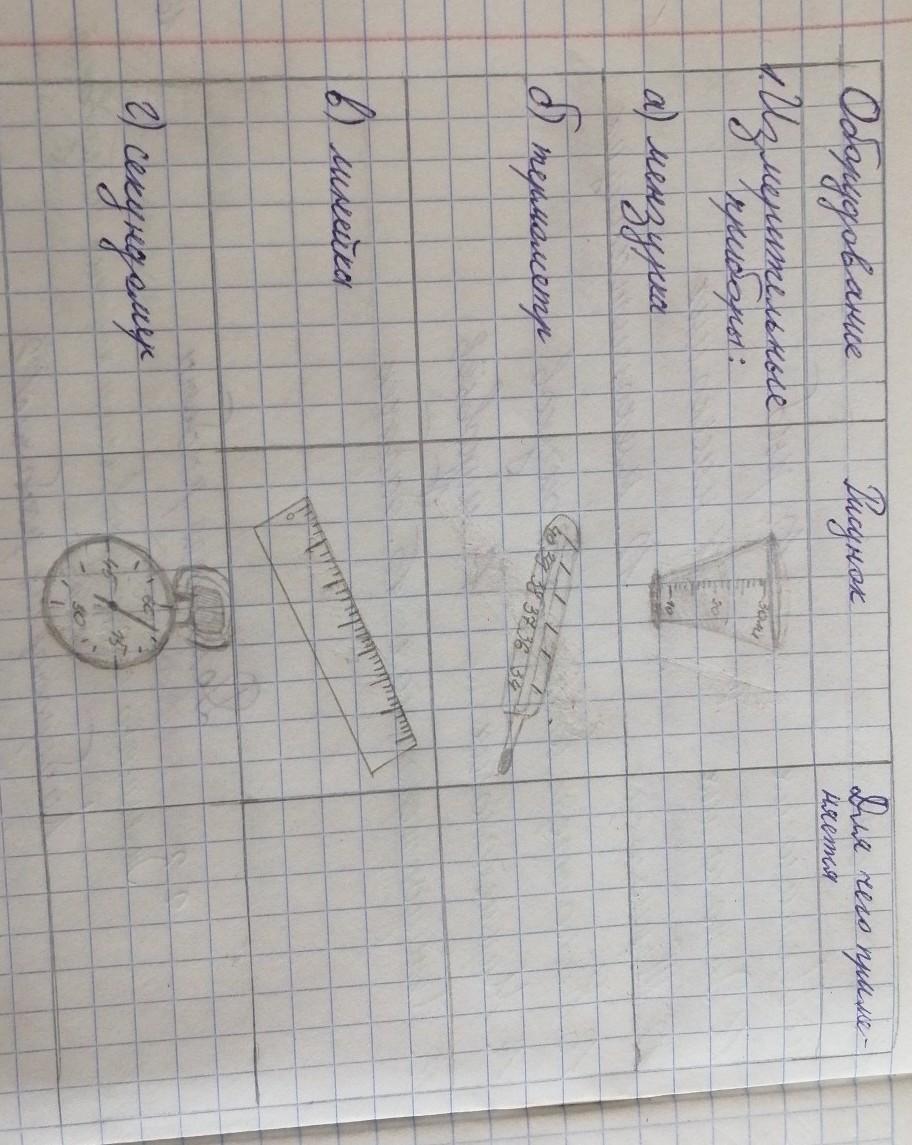 Оборудование
Рисунок
Для чего приме-
няется
1. Измерительные
приборы:
а) мензурка
30мл
20
10
б) термометр
40 39 38 37 36 34
в) линейка
0
г) секундомер
60
15
30
45